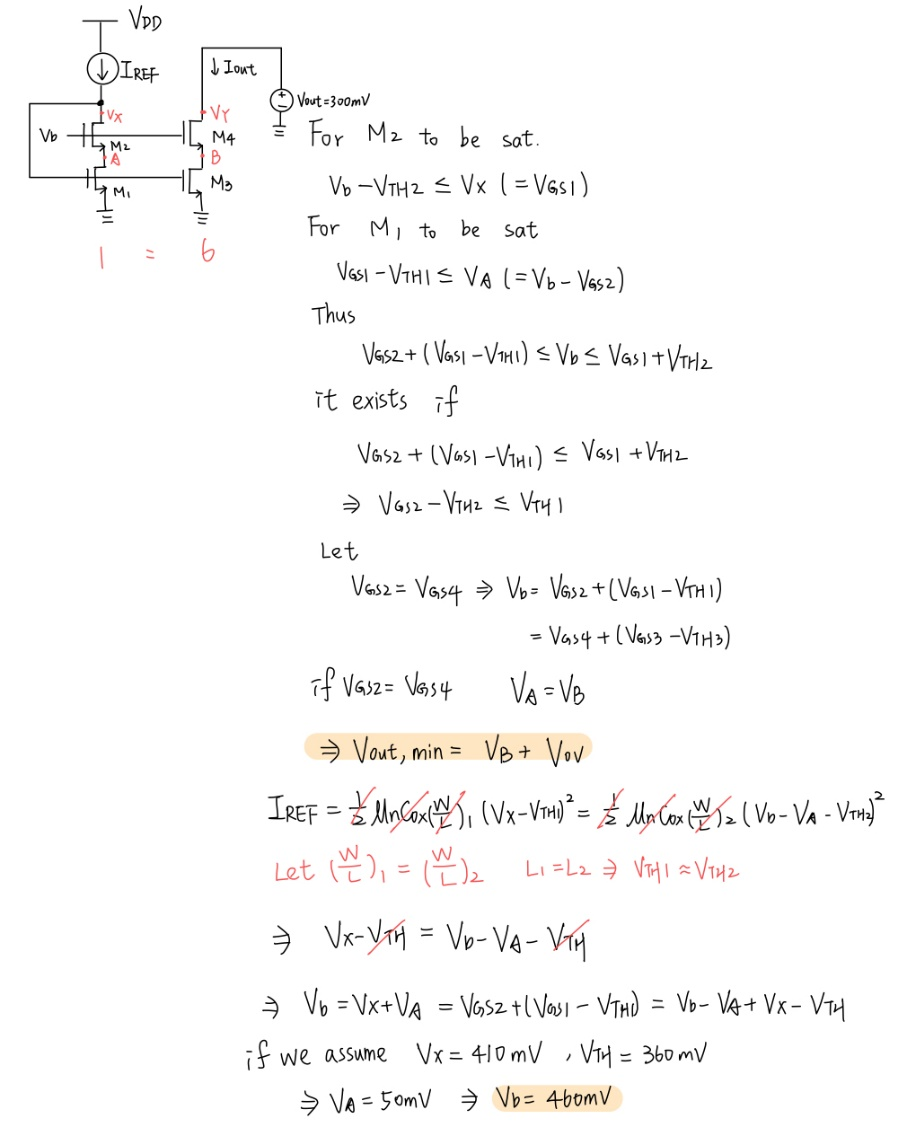 VDD
IREF
↓ Iout
Vout=300mV
Vx
VY
Vb
M2
M4
A
B
M1
M3
1 = 6
For M2 to be sat.
Vb-VTH2 ≤ Vx (=VGS1)
For M1 to be sat
VGS1-VTH1 ≤ VA (=Vb-VGS2)
Thus
VGS2+(VGS1-VTH1) ≤ Vb ≤ VGS1+VTH2
it exists if
VGS2+(VGS1-VTH1) ≤ VGS1+VTH2
⇒ VGS2-VTH2 ≤ VTH1
Let
VGS2=VGS4 ⇒ Vb= VGS2+(VGS1-VTH1)
= VGS4+(VGS3-VTH3)
if VGS2=VGS4 VA=VB
⇒ Vout,min = VB+VOV
IREF = 1/2 μnCox(W/L)1 (Vx-VTH1)² = 1/2 μnCox(W/L)2 (Vb-VA-VTH2)²
Let (W/L)1 = (W/L)2 L1=L2 ⇒ VTH1≈VTH2
⇒ Vx-VTH = Vb-VA-VTH
⇒ Vb=Vx+VA = VGS2+(VGS1-VTH1) = Vb-VA+Vx-VTH
if we assume Vx=410mV , VTH=360mV
⇒ VA=50mV ⇒ Vb=460mV